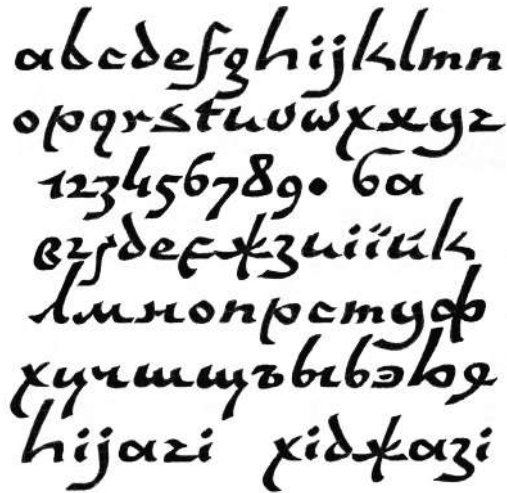 abcdefghijklmn
opqrstuvwxxyz
123456789• ба
вгґдеєжзиіїйк
лмнопрстуф
хцчшщъыьэюя
hijazi хіджазі